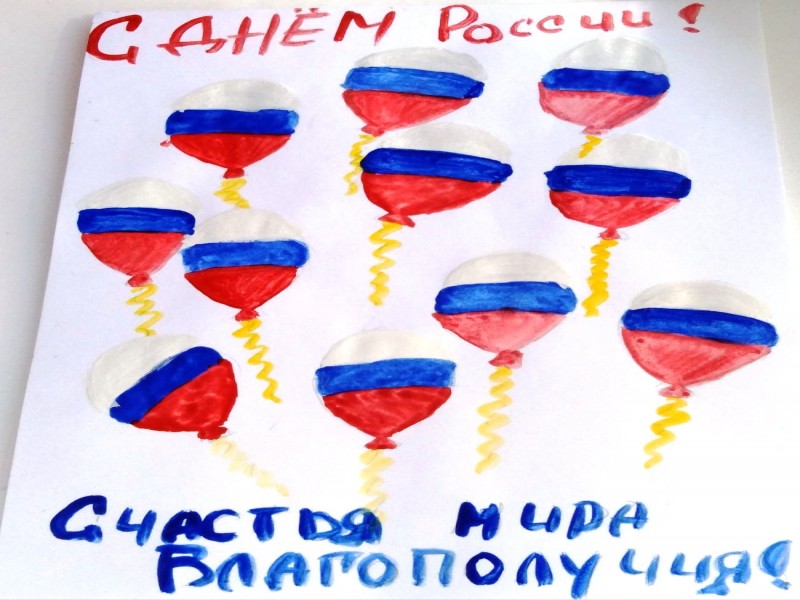 С ДНЁМ РОССИИ!
СЧАСТЬЯ МИРА
БЛАГОПОЛУЧИЯ!